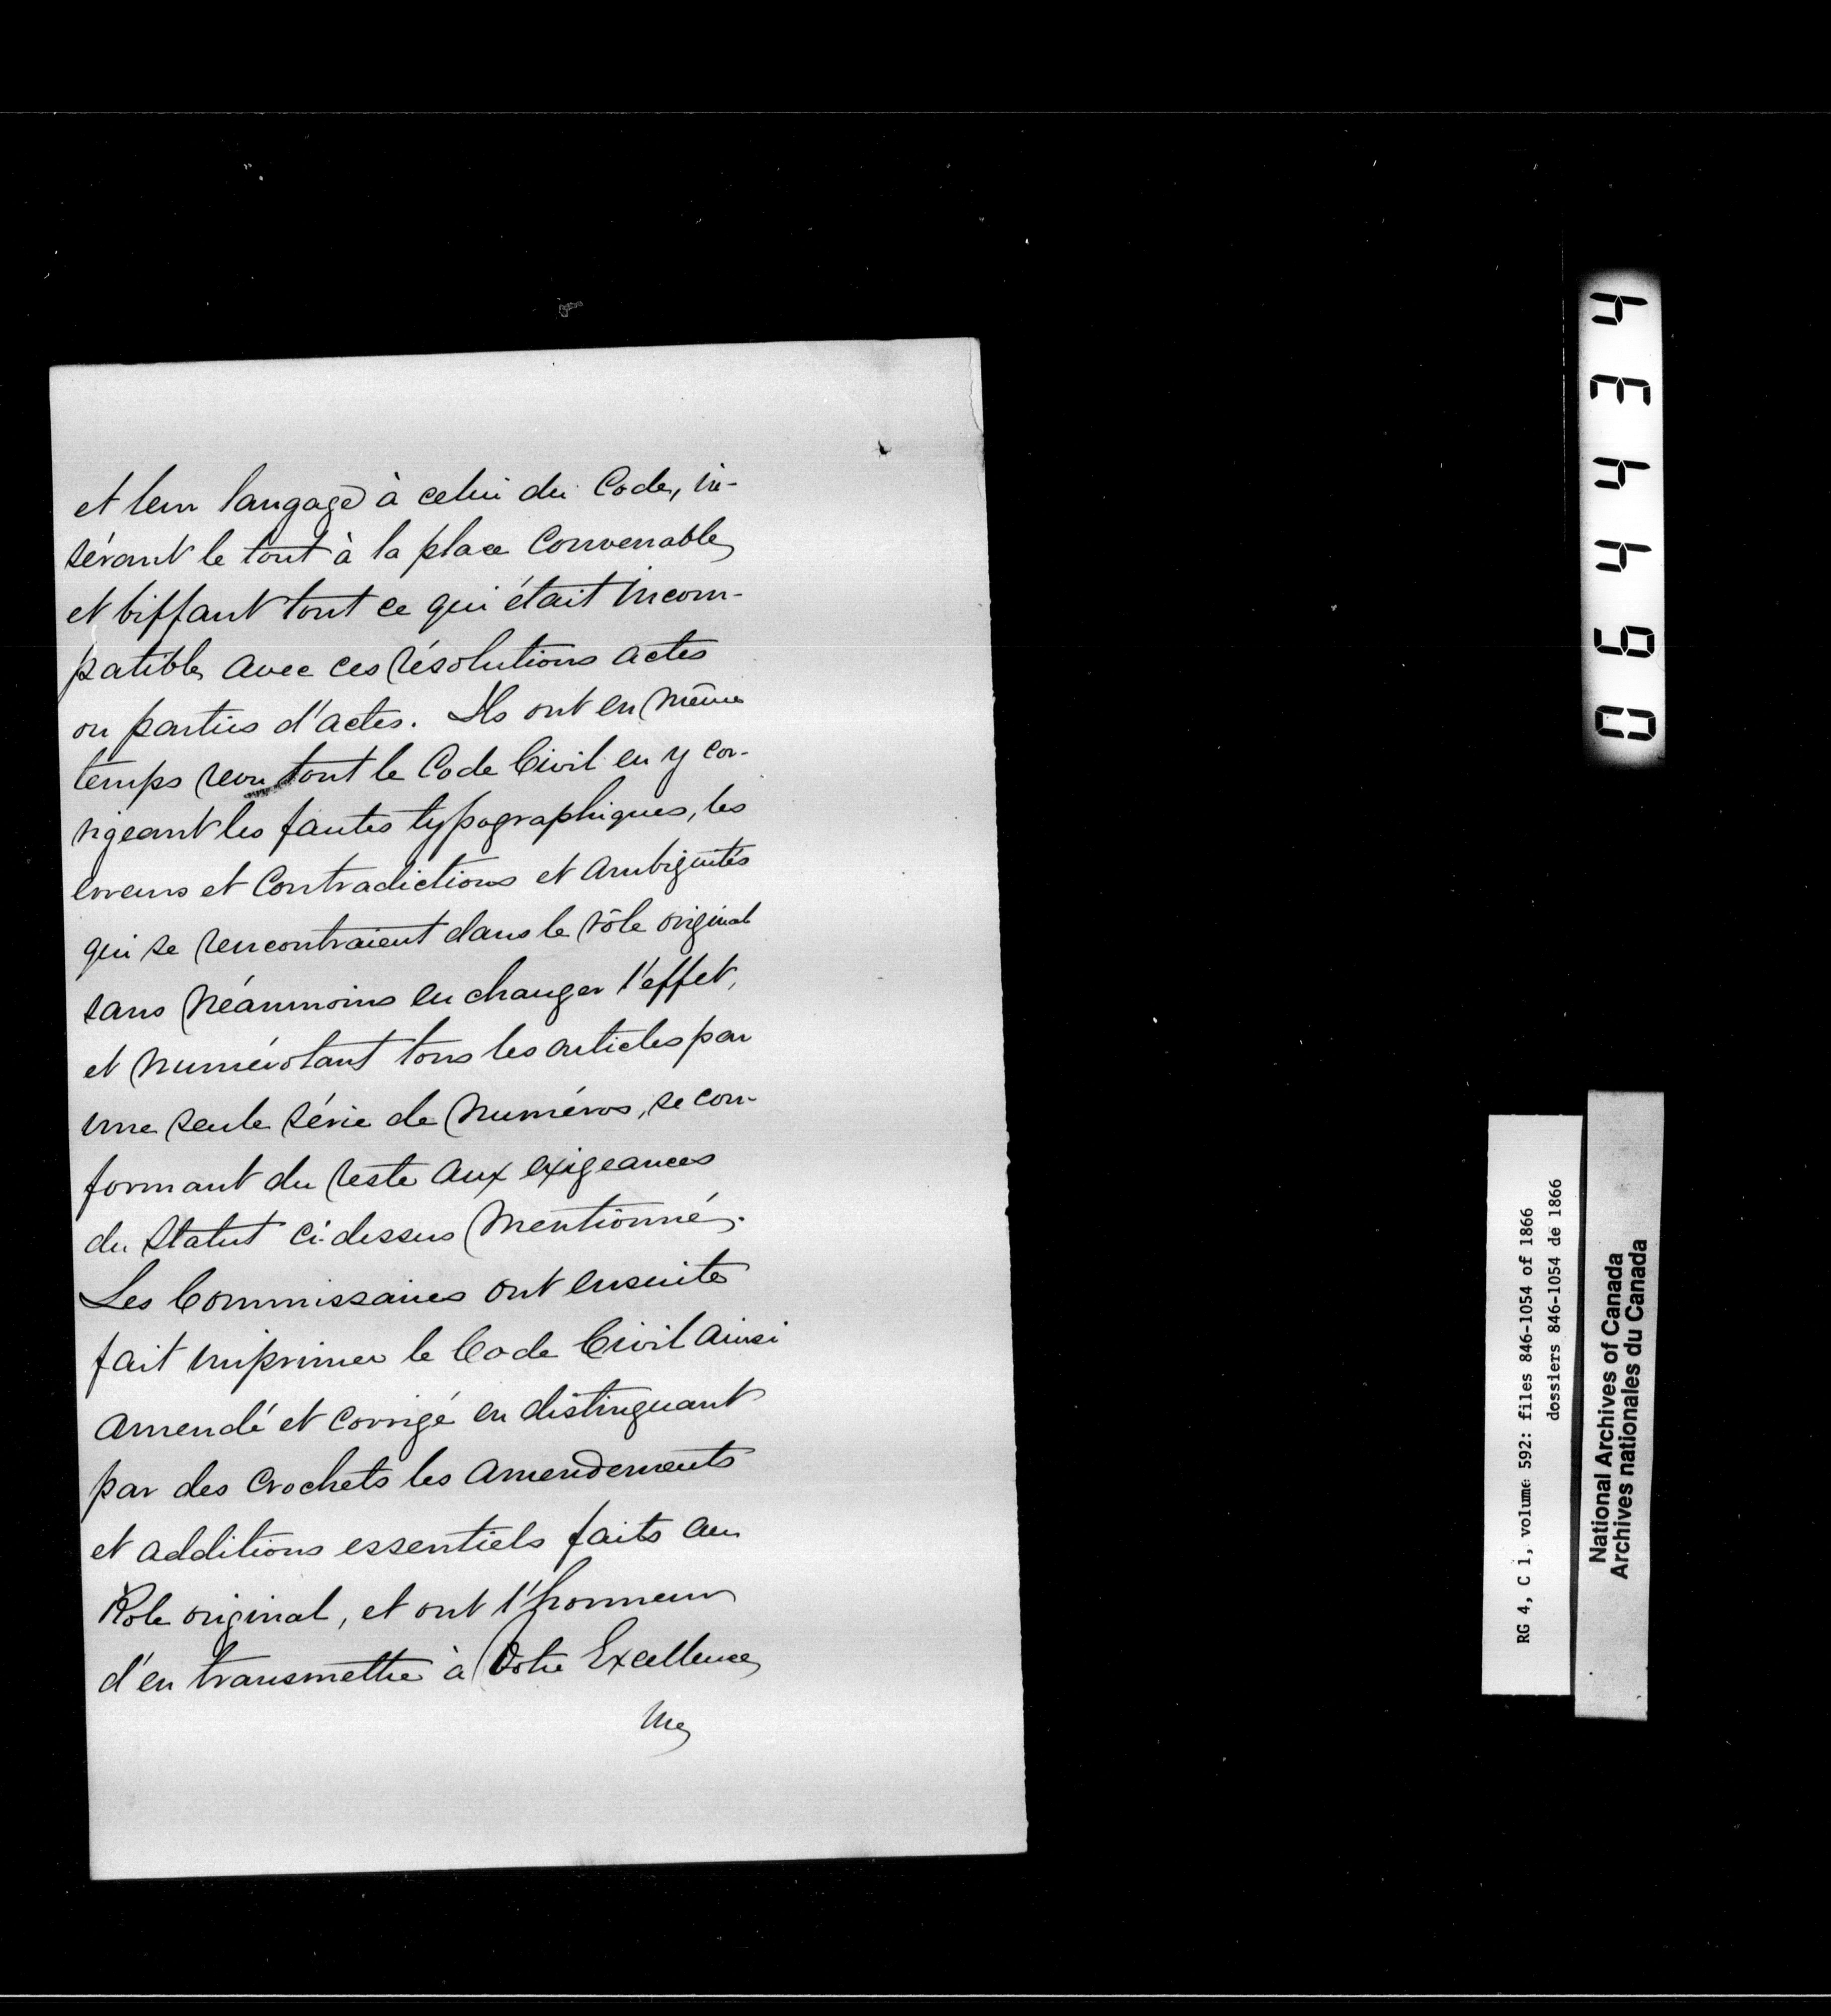 et leur langage à celui du Code, in-
sérant le tout à la place Convenable
et biffant tout ce qui était incom-
patible avec ces résolutions actes
ou parties d'actes. Ils ont en même
temps revu tout le Code Civil en y cor-
rigeant les fautes typographiques, les
erreurs et Contradictions et ambiguités
qui se rencontraient dans le rôle original
sans néanmoins en changer l'effet,
et numérotant tous les articles par
une seule série de numéros, se con-
formant du reste aux exigeances
du Statut ci-dessus mentionné.
Les Commissaires ont ensuite
fait imprimer le Code Civil ainsi
amendé et corrigé en distinguant
par des Crochets les amendements
et additions essentiels faits au
Role original, et ont l'honneur
d'en transmettre à Votre Excellence
une
064434
RG 4, C 1, volume 592: files 846-1054 of 1866
dossiers 846-1054 de 1866
National Archives of Canada
Archives nationales du Canada